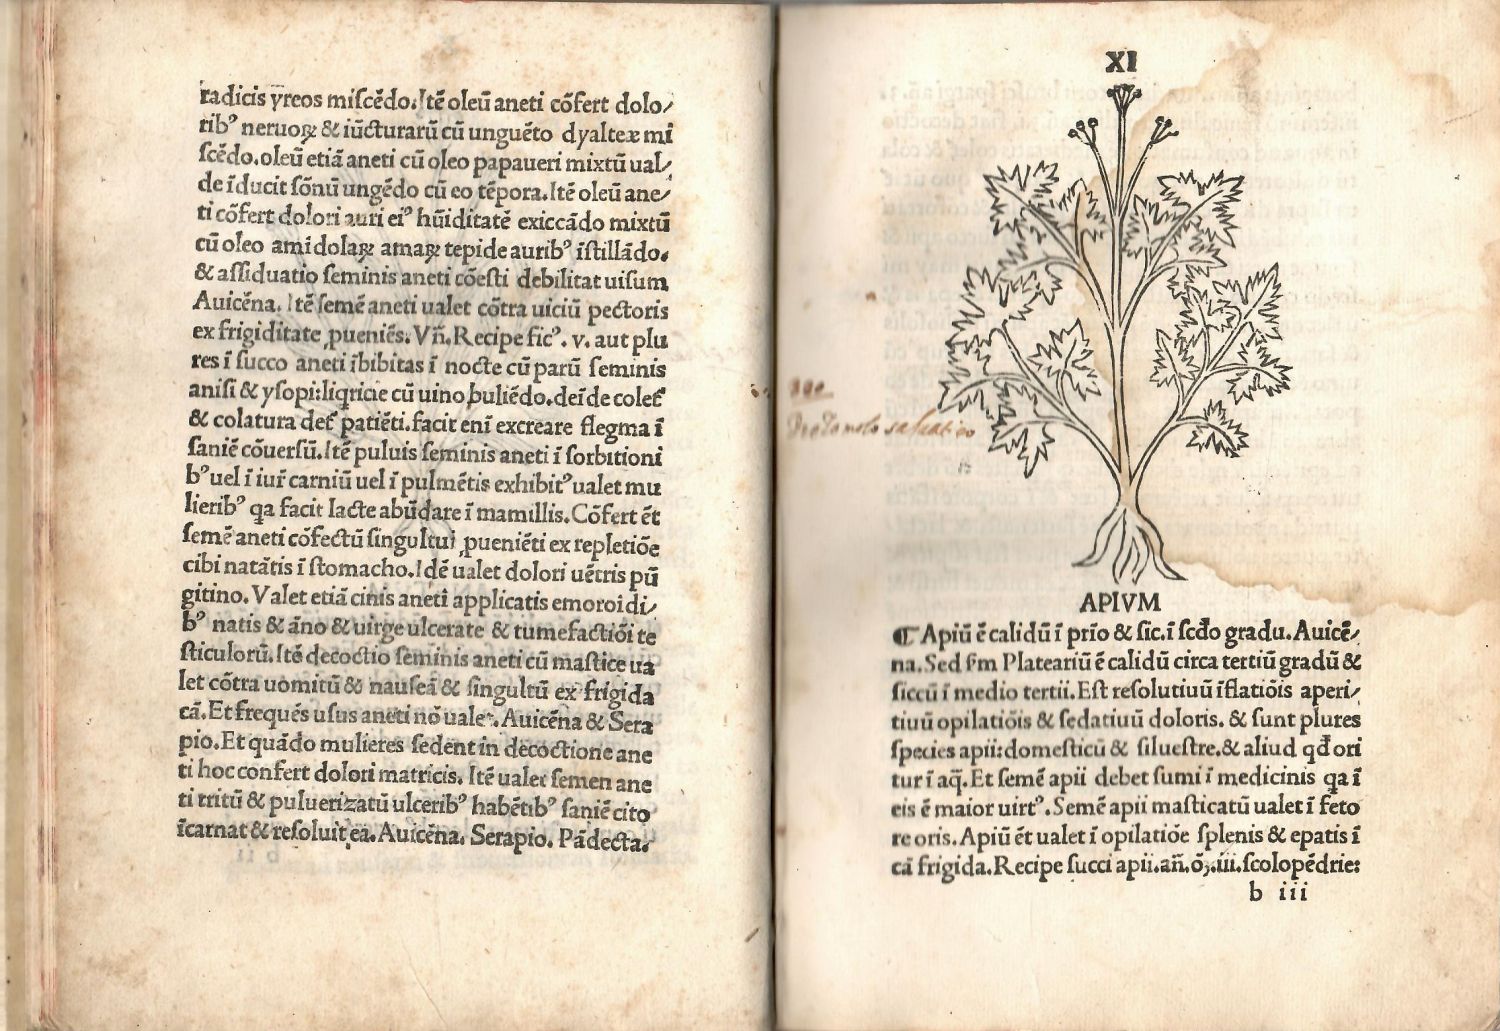 radicis yreos miſcēdo. Itē oleū aneti cōfert dolo/
ribꝰ neruoꝝ & iūcturarū cū unguēto dyalteæ mi
ſcēdo. oleū etiā aneti cū oleo papaueri mixtū ual/
de īducit ſōnū ungēdo cū eo tēpora. Itē oleū ane/
ti cōfert dolori auri eiꝰ hūiditatē exiccādo mixtū
cū oleo amidolaꝝ amaꝝ tepide auribꝰ īſtillādo.
& aſſiduatio ſeminis aneti cōeſti debilitat uiſum
Auicēna. Itē ſemē aneti ualet cōtra uiciū pectoris
ex frigiditate ꝓueniēs. Vñ. Recipe ficꝰ. v. aut plu
res ī ſucco aneti ībibitas ī nocte cū parū ſeminis
aniſi & yſopi:liqricie cū uino buliēdo. deīde coleť
& colatura deť patiēti. facit enī excreare flegma ī
ſaniē cōuerſū. Itē puluis ſeminis aneti ī ſorbitioni
bꝰ uel ī iuř carniū uel ī pulmētis exhibitꝰ ualet mu
lieribꝰ qa facit lacte abūdare ī mamillis. Cōfert ēt
ſemē aneti cōfectū ſingultui ꝓueniēti ex repletiōe
cibi natātis ī ſtomacho. Idē ualet dolori uētris pū
gitino. Valet etiā cinis aneti applicatis emoroidi/
bꝰ natis & āno & uirge ulcerate & tumefactiōi te
ſticulorū. Itē decoctio ſeminis aneti cū maſtice ua
let cōtra uomitū & nauſeā & ſingultū ex frigida
cā. Et frequēs uſus aneti nō ualeť. Auicēna & Sera
pio. Et quādo mulieres ſedent in decoctione ane
ti hoc confert dolori matricis. Itē ualet ſemen ane
ti tritū & puluerizatū ulceribꝰ habētibꝰ ſaniē cito
īcarnat & reſoluit ea. Auicēna. Serapio. Pādecta.
XI
APIVM
¶ Apiū ē calidū ī prīo & ſic. ī ſcdo gradu. Auicē/
na. Sed ſm Plateariū ē calidū circa tertiū gradū &
ſiccū ī medio tertii. Eſt reſolutiuū īflatiōis aperi/
tiuū opilatiōis & ſedatiuū doloris. & ſunt plures
ſpecies apii:domeſticū & ſilueſtre. & aliud qđ ori
tur ī aq̄. Et ſemē apii debet ſumi ī medicinis qa ī
eis ē maior uirtꝰ. Semē apii maſticatū ualet ī feto
re oris. Apiū ēt ualet ī opilatiōe ſplenis & epatis ī
cā frigida. Recipe ſucci apii. añ. ℥. iii. ſcolopēdrie:
b iii